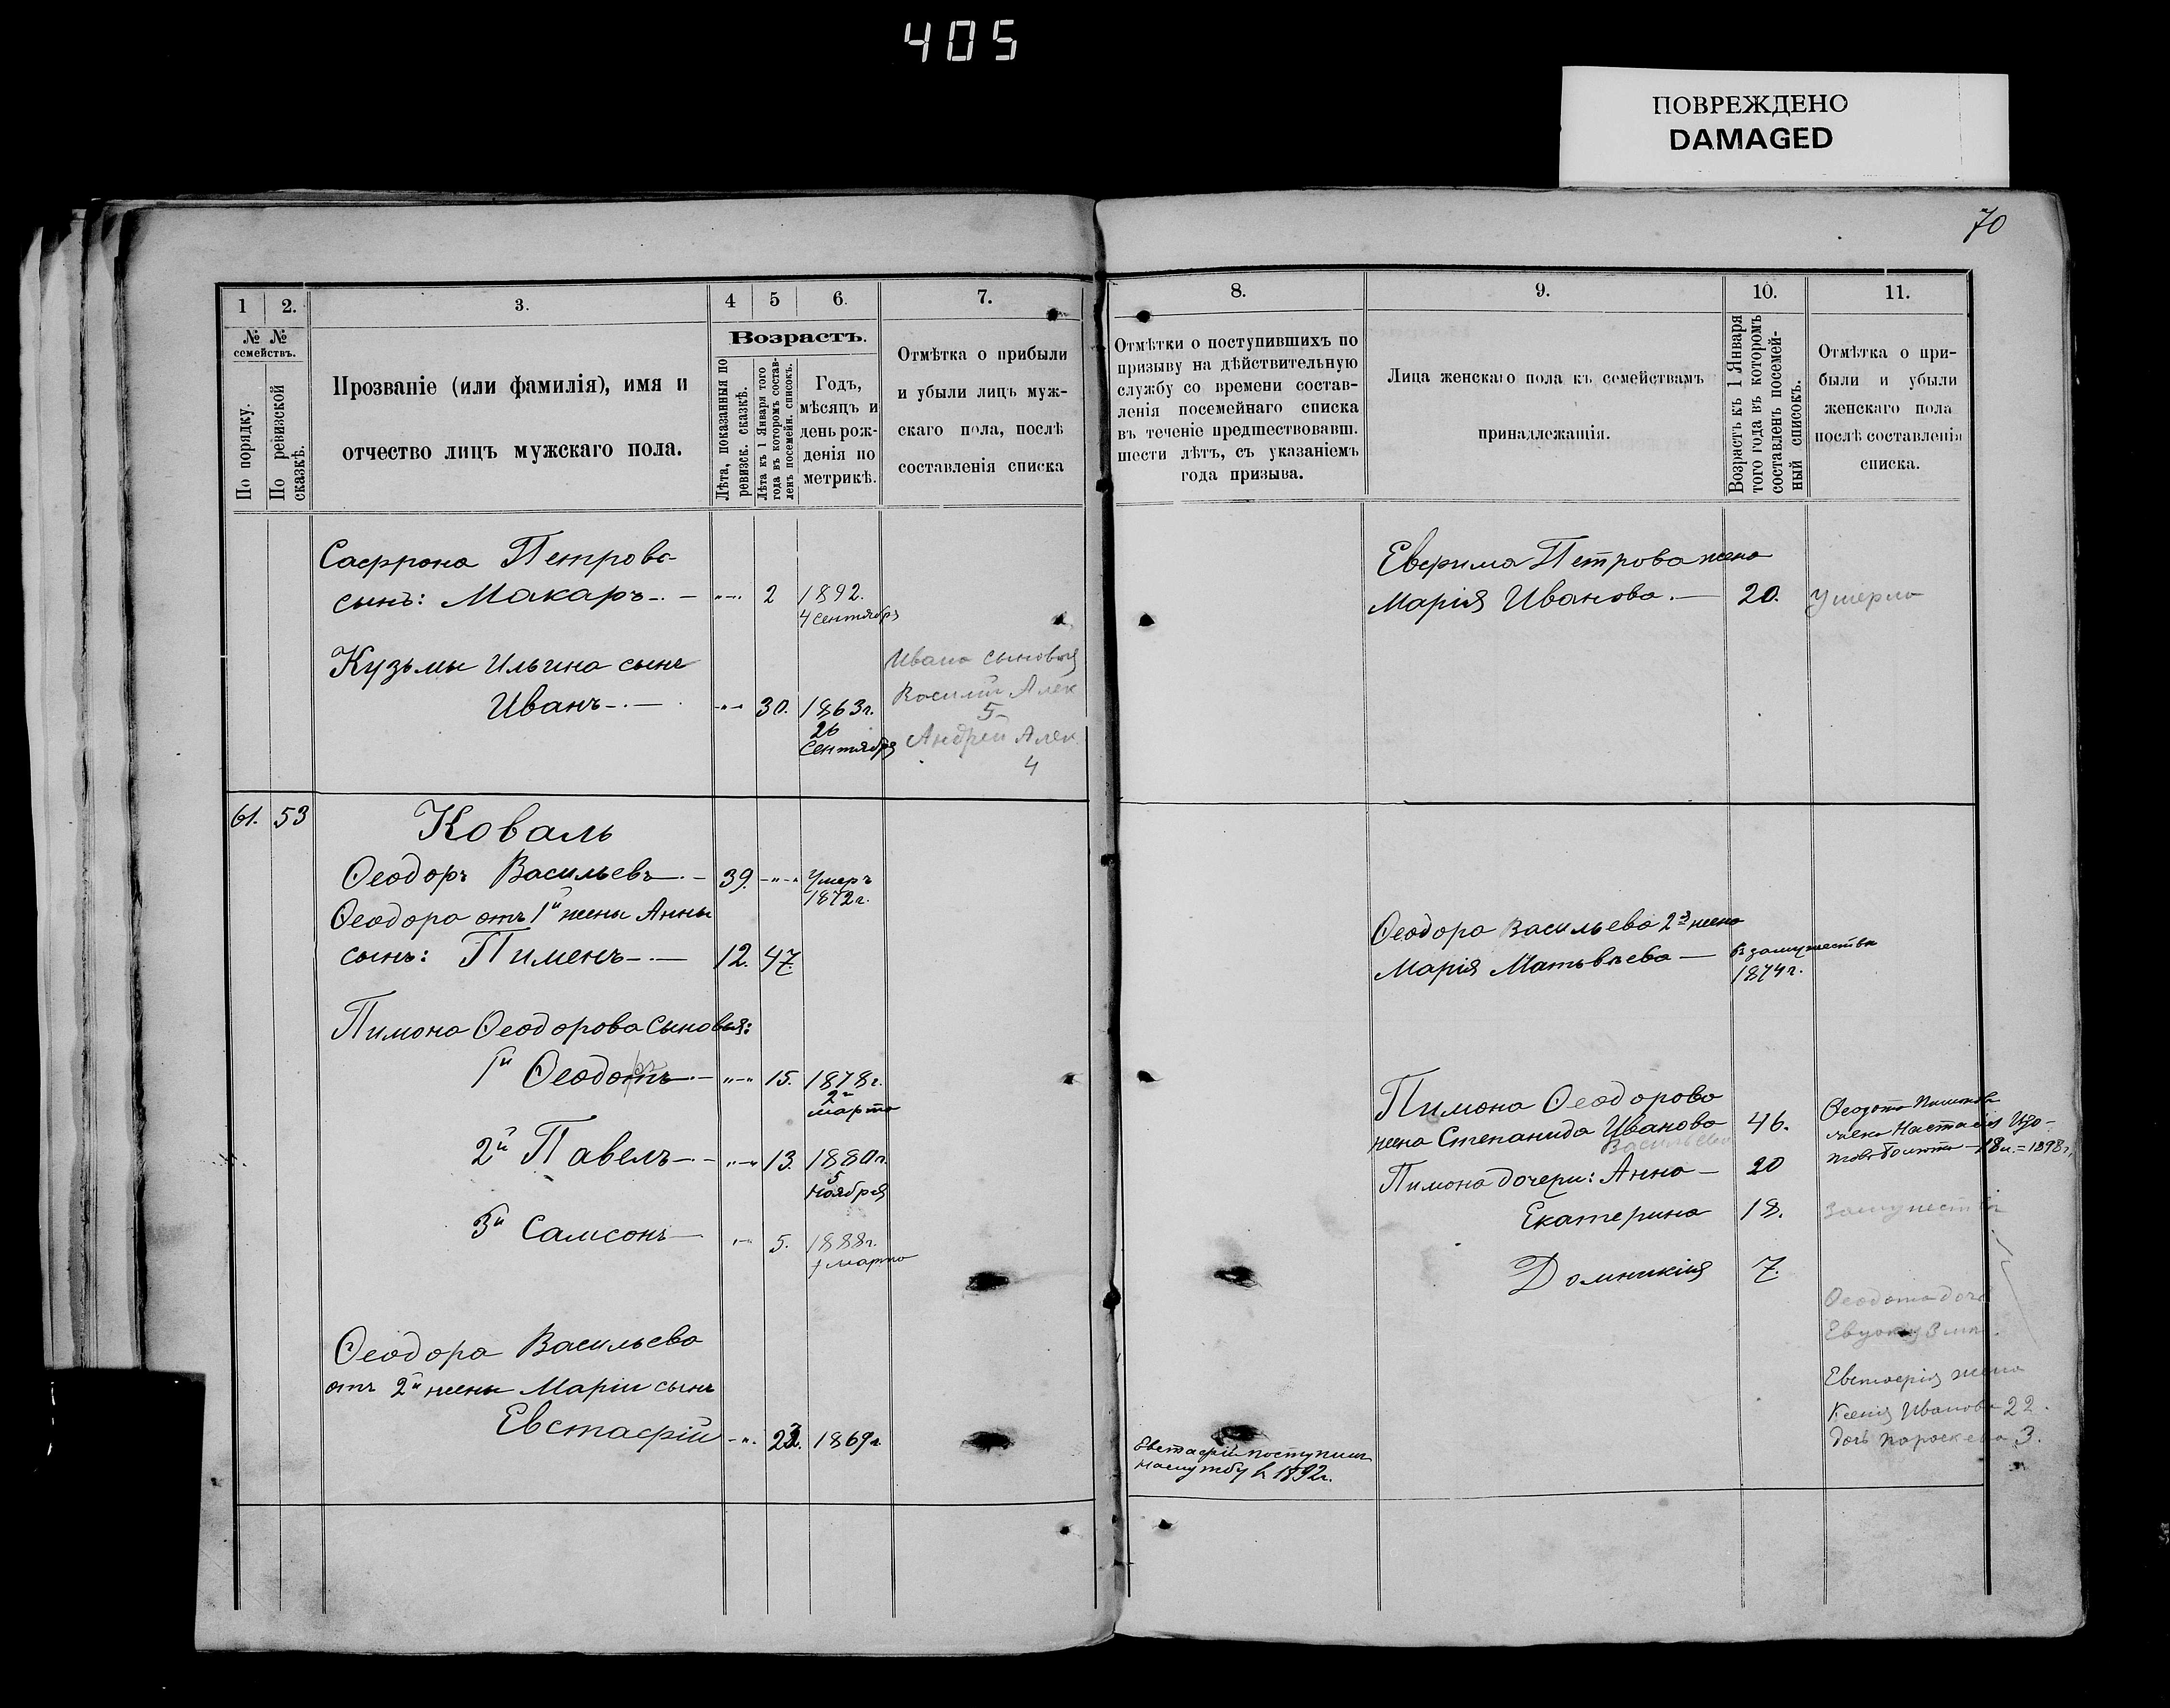 405
ПОВРЕЖДЕНО
DAMAGED
70
1
2.
3.
4
5
6.
7.
№ №
семействъ.
По порядку.
По ревизской
сказкѣ.
Прозваніе (или фамилія), имя и
отчество лицъ мужскаго пола.
Возрастъ.
Лѣта, показанныя по
ревизск. сказкѣ.
Лѣта къ 1 Января того
года въ которомъ состав-
ленъ посемейн. списокъ.
Годъ,
мѣсяцъ и
день рож-
денія по
метрикѣ.
Отмѣтка о прибыли
и убыли лицъ муж-
скаго пола, послѣ
составленія списка
Сафрона Петрова
сынъ: Макаръ 2 1892.
4 сентября
Кузьмы Ильина сынъ
Иванъ 30. 1863г.
26
Сентября
Ивана сыновья
Василій Алек
5
Андрей Алек
4
61. 53
Коваль
Ѳеодоръ Васильевъ 39. Умеръ
1872г.
Ѳеодора отъ 1й жены Анны
сынъ: Пименъ 12. 47.
Пимона Ѳеодорова сыновья:
1й Ѳеодотъ 15. 1878г.
2го
марта
2й Павелъ 13. 1880г.
5
Ноября
3й Самсонъ 5. 1888г.
1 марта
Ѳеодора Васильева
отъ 2й жены Маріи сынъ
Евстафій 23. 1869г.
8.
9.
10.
11.
Отмѣтки о поступившихъ по
призыву на дѣйствительную
службу со времени состав-
ленія посемейнаго списка
въ теченіе предшествовавш.
шести лѣтъ, съ указаніемъ
года призыва.
Лица женскаго пола къ семействамъ
принадлежащія.
Возрастъ къ 1 Января
того года въ которомъ
составленъ посемей-
ный списокъ.
Отмѣтка о при-
были и убыли
женскаго пола
послѣ составленія
списка.
Ефима Петрова жена
Марія Иванова. 20. умерла
Ѳеодора Васильева 2я жена
Марія Матвѣева въ замужествѣ
1874г.
Пимона Ѳеодорова
жена Степанида Иванова 46.
Васильева
Пимона дочери: Анна 20
Екатерина 18. замужествѣ
Домникія 7.
Ѳеодота Пимонова
жена Настасія
18л. = 1898г.
Ѳеодота дочь
Евстафія жена
Ксенія Иванова 22.
дочь Параскева 3.
Евстафій поступилъ
на службу въ 1892г.